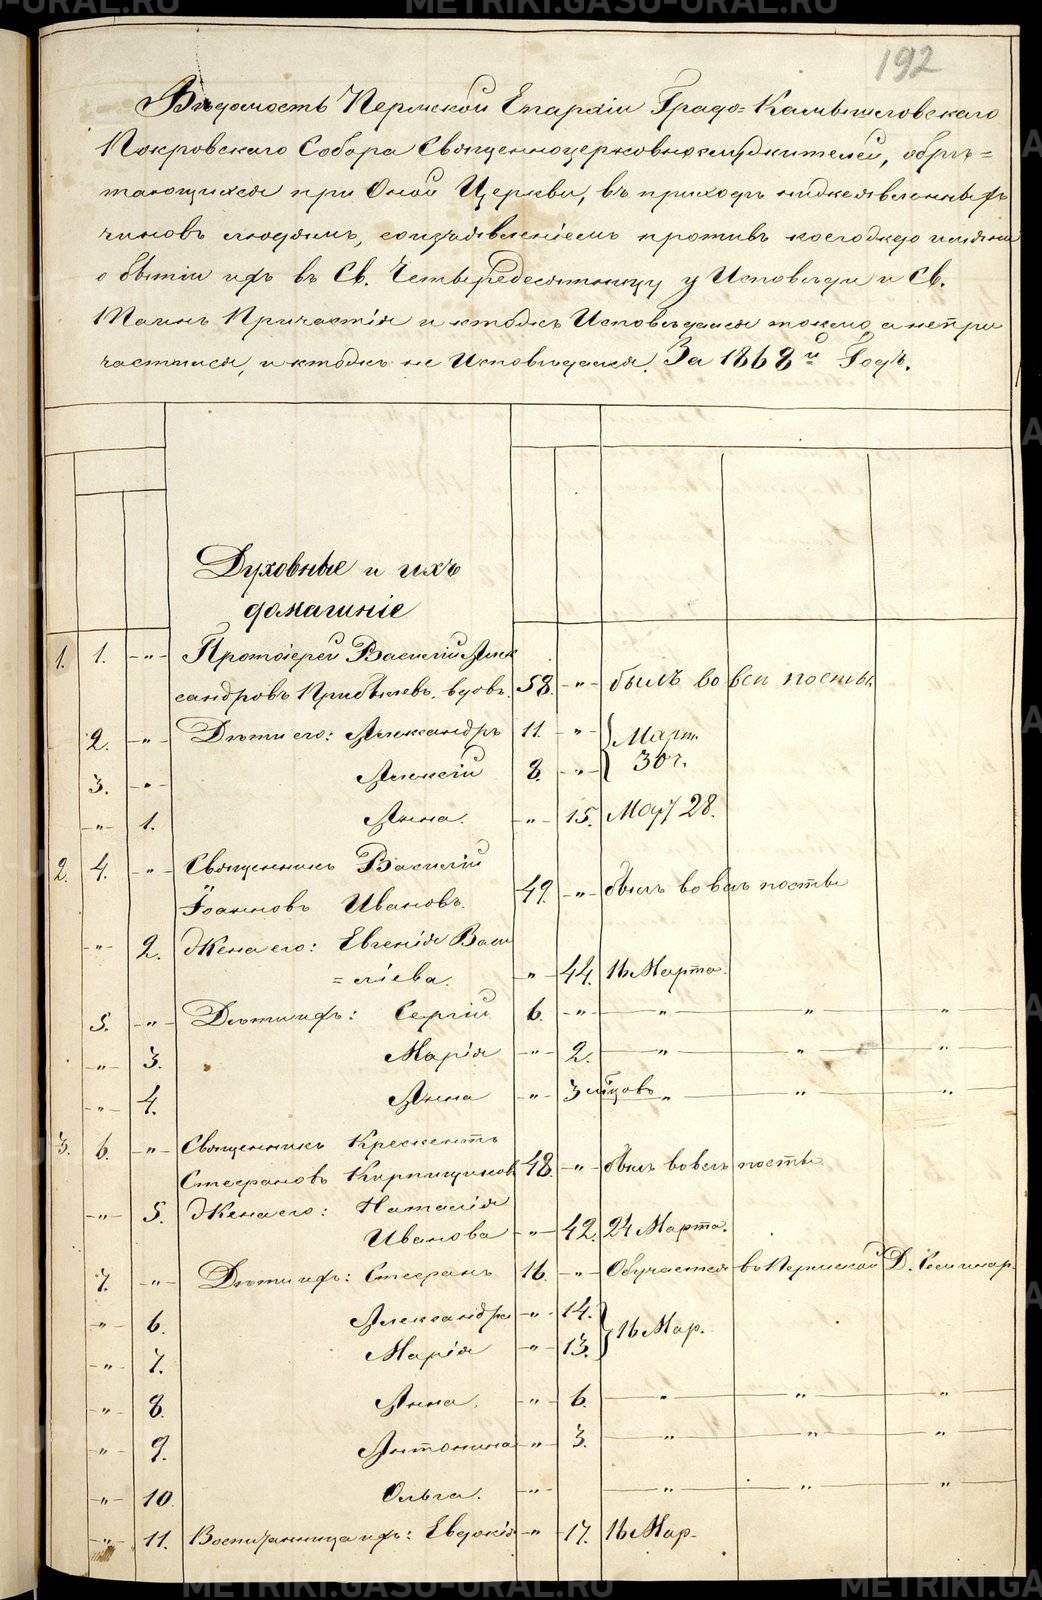 192
Вѣдомость Пермской Епархіи Градо-Камышловскаго
Покровскаго Собора Священноцерковнослужителей, обрѣ=
тающихся при Оной Церкви, въ приходѣ нижеявленныхъ
чиновъ людямъ, съ изъявленіемъ противъ коегождо имяни
о бытіи ихъ въ Св. Четыредесятницу у Исповѣди и Св.
Таинъ Причастія и ктожъ Исповѣдался токмо а непри
частился, и ктожъ не Исповѣдался. За 1868й Годъ.
Духовные и ихъ
домашніе
1. 1. -"- Протоіерей Василій Алек
сандровъ Прибылевъ. вдовъ. 58. -"- былъ во всѣ посты.
2. -"- Дѣти его: Александръ 11. -"- Март.
3. -"- Алексій 8. -"- 30 ч.
-"- 1. Анна. -"- 15. Мар 28.
2. 4. -"- Священникъ Василій
Іоанновъ Ивановъ. 49. -"- былъ во всѣ посты
-"- 2. Жена его: Евгенія Васи
=ліева. " 44. 16 Марта.
5. -"- Дѣти ихъ: Сергій 6. -"- " " "
-"- 3. Марія -"- 2. " " "
-"- 4. Анна -"- 3 мѣцовъ " " "
3. 6. -"- Священникъ Крескентъ
Стефановъ Кирпищиковъ 48. -"- былъ во всѣ посты.
-"- 5. Жена его: Наталія
Иванова -"- 42. 24 Марта.
7. -"- Дѣти ихъ: Стефанъ 16. -"- Обучается въ Пермской Д. Семинар.
-"- 6. Александра -"- 14.
-"- 7. Марія -"- 13. 16 Мар.
-"- 8. Анна. -"- 6. " " "
-"- 9. Антонина -"- 3. " " "
-"- 10. Ольга. -"- " " "
-"- 11. Воспитанница ихъ: Евдокія -"- 17. 16 Мар.
METRIKI.GASU-URAL.RU